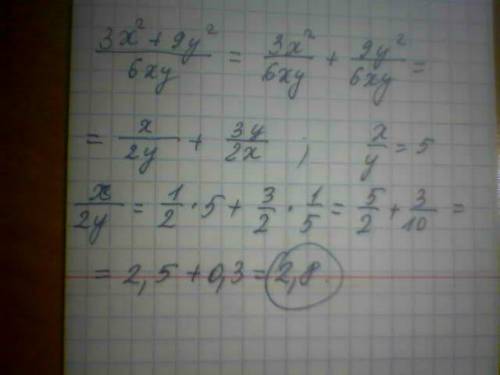 (3x² + 9y²)/(6xy) = 3x²/(6xy) + 9y²/(6xy) =
= x/(2y) + 3y/(2x) ; x/y = 5
x/(2y) = 1/2 · 5 + 3/2 · 1/5 = 5/2 + 3/10 =
= 2,5 + 0,3 = 2,8.